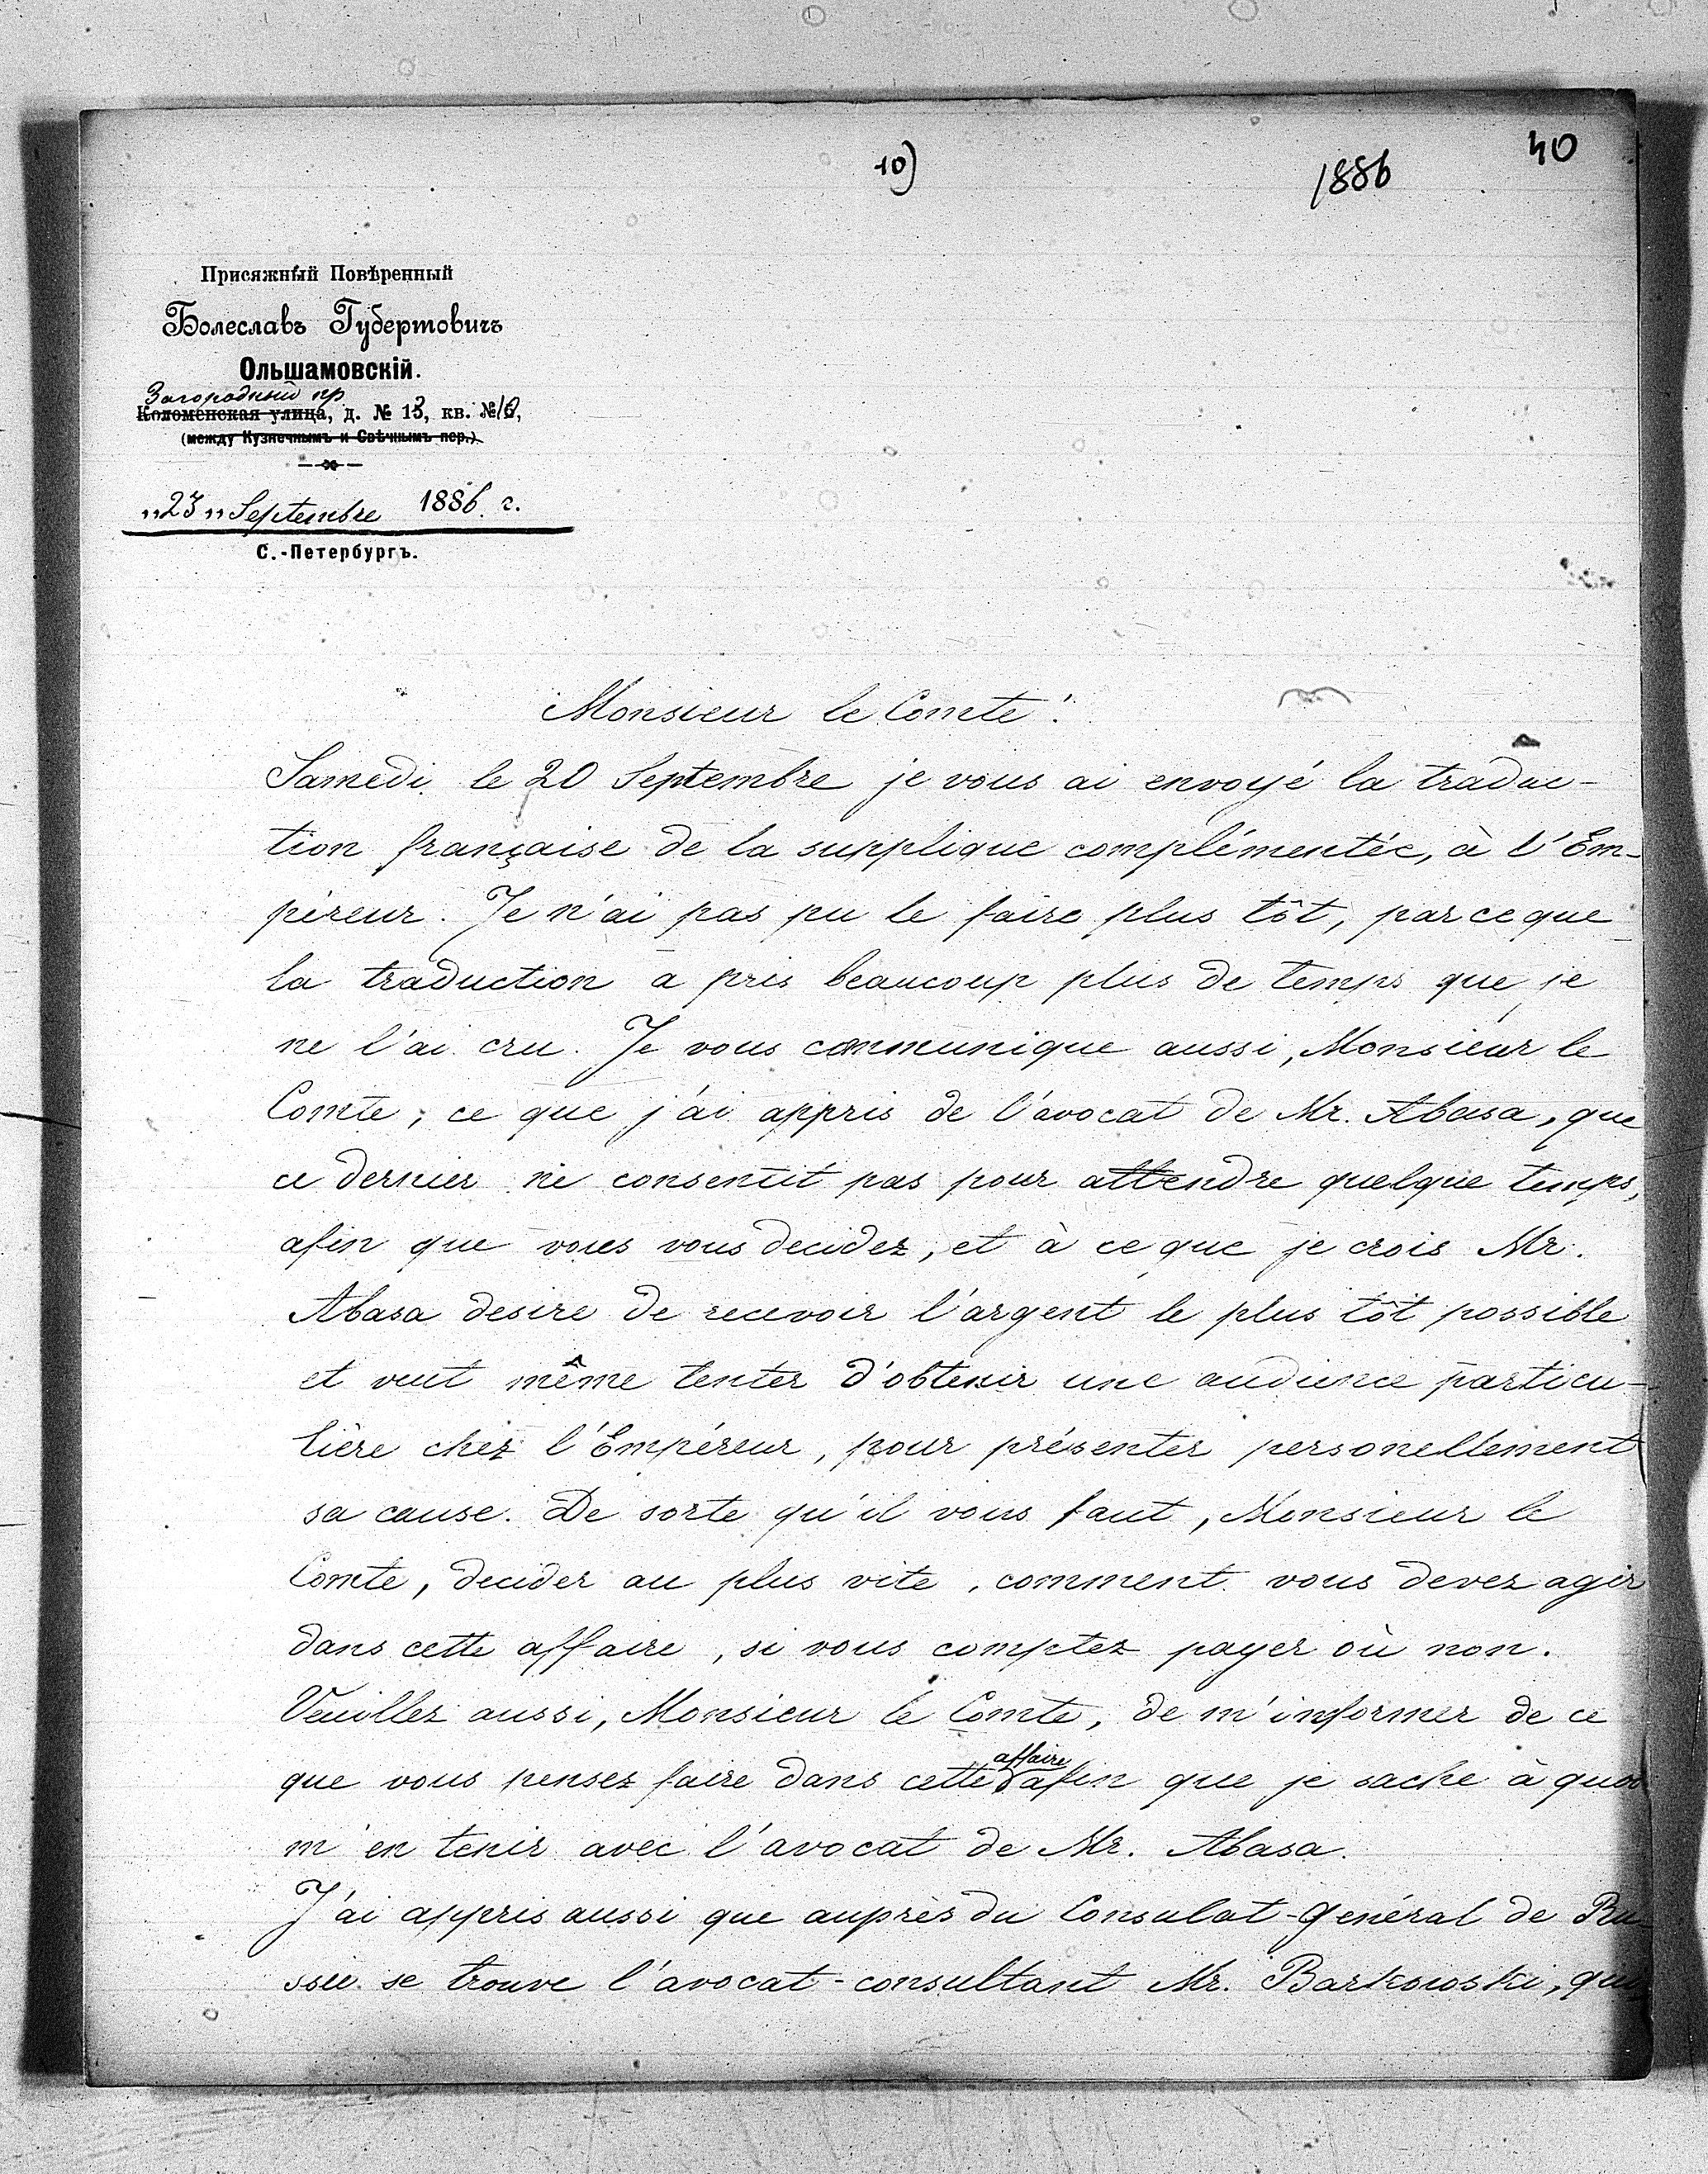 10)
1886
40
Присяжный Повѣренный
Болеславъ Губертовичъ
Ольшамовскій.
Загородный пр
Коломенская улица, д. № 13, кв. № 10,
(между Кузнечнымъ и Свѣчнымъ пер.)
„23„ Septembre 1886 г.
С.-Петербургъ.
Monsieur le Comte!
Samedi le 20 Septembre je vous ai envoyé la traduc-
tion française de la supplique complémentée, à l'Em-
péreur. Je n'ai pas pu le faire plus tôt, parceque
la traduction a pris beaucoup plus de temps que je
ne l'ai cru. Je vous communique aussi, Monsieur le
Comte, ce que j'ai appris de l'avocat de Mr. Abasa, que
ce dernier ne consentit pas pour attendre quelque temps,
afin que vous vous decidez, et à ce que je crois Mr.
Abasa desire de recevoir l'argent le plus tôt possible
et veut même tenter d'obtenir une audience particu-
lière chez l'Empéreur, pour présenter personellement
sa cause. De sorte qu'il vous faut, Monsieur le
Comte, decider au plus vite, comment vous devez agir
dans cette affaire, si vous comptez payer où non.
Veuillez aussi, Monsieur le Comte, de m'informer de ce
que vous pensez faire dans cette affaire afin que je sache à quoi
m'en tenir avec l'avocat de Mr. Abasa.
J'ai appris aussi que auprès du Consulat-Général de Ru-
ssie se trouve l'avocat-consultant Mr. Barkowski, qui